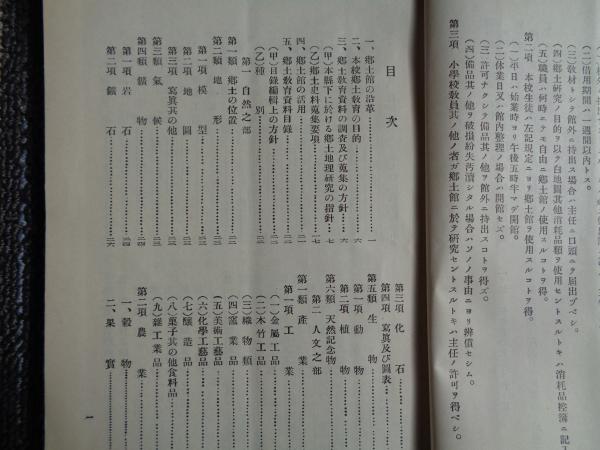 (二)借用期間ハ一週間以内トス。
(三)敎材トシテ館外ニ持出ス場合ハ主任ニ口頭ニテ屆出ヅベシ。
(四)鄉土研究ノ目的ヲ以テ白地圖其他消耗品類ヲ使用セントスルトキハ消耗品控簿ニ記入
(五)職員ハ何時ニテモ自由ニ鄉土館ノ使用スルコトヲ得。
第二項 本校生徒ハ左記規定ニヨリ鄉土館ヲ使用スルコトヲ得。
(一)平日ハ始業時ヨリ午後五時半マデ開館。
(二)休業日又ハ館內整理ノ場合ハ開館セズ。
(三)許可ナクシテ備品其ノ他ヲ館外ニ持出スコトヲ得ズ。
(四)備品其ノ他ヲ破損紛失汚瀆シタル場合ハソノ事由ニヨリ辨償セシム。
第三項 小學校敎員其ノ他ノ者ガ鄉土館ニ於テ硏究セントスルトキハ主任ノ許可ヲ得ベシ。
目次
一、鄉土館の沿革 一
二、本校鄉土敎育の目的 六
三、鄉土敎育資料の調査及び蒐集の方針 六
(甲)本縣下に於ける鄉土地理硏究の指針 七
(乙)鄉土史料蒐集要項 一七
四、鄉土館の活用 二一
五、鄉土敎育資料目錄
(甲)目錄編輯上の方針
(乙)種別
第一 自然之部
第一類 鄉土の位置
第二類 地形
第一項 模型
第二項 地圖
第三項 寫眞其の他
第三類 氣候
第四類 鑛物
第一項 岩石
第二項 鑛石
第三項 化石
第四項 寫眞及び圖表
第五類 生物
第一項 動物
第二項 植物
第六類 天然記念物
第二 人文之部
第一類 產業
第一項 工業
(一)金屬工品
(二)木竹工品
(三)織物類
(四)窯業品
(五)美術工藝品
(六)化學工藝品
(七)釀造品
(八)菓子其の他食料品
(九)雜工業品
第二項 農業
一、穀物
二、果實
一